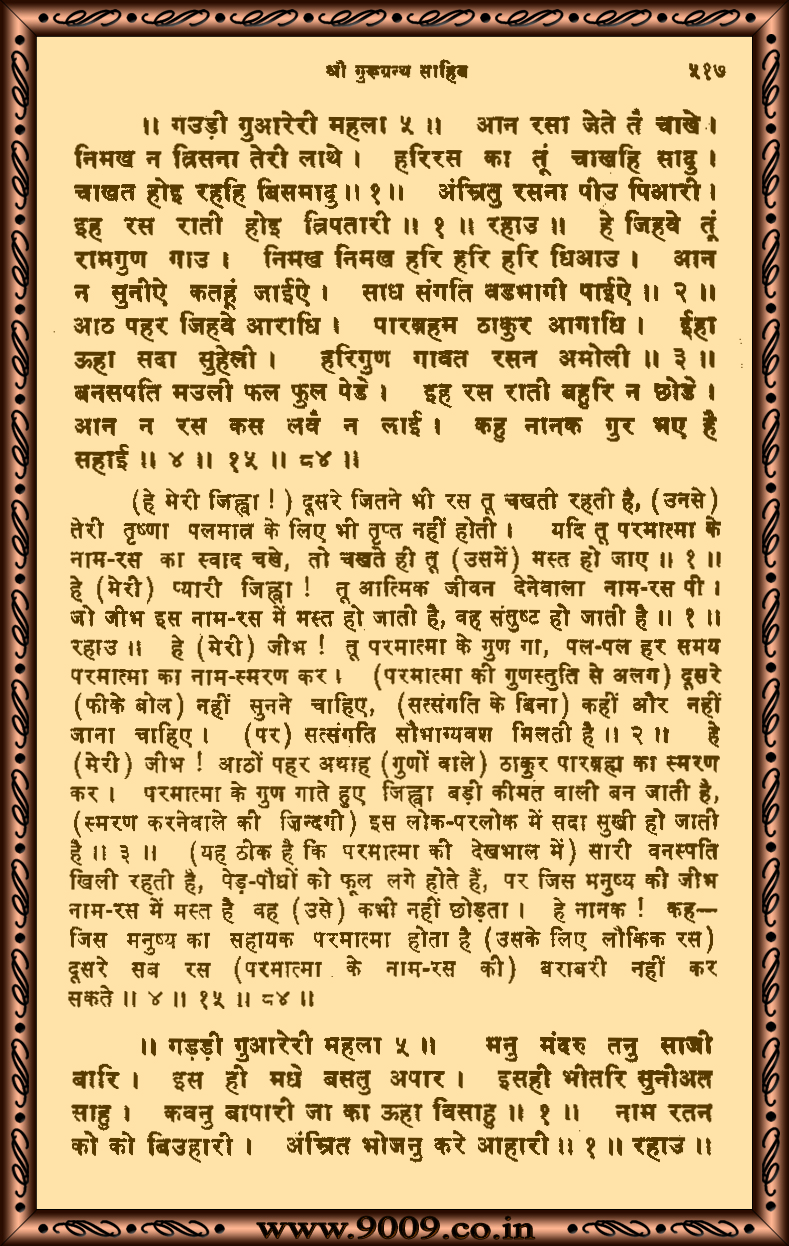 श्री गुरूग्रन्थ साहिब ५१७
॥ गउड़ी गुआरेरी महला ५ ॥ आन रसा जेते तैं चाखे ।
निमख न त्रिसना तेरी लाथे । हरिरस का तूं चाखहि सादु ।
चाखत होइ रहहि बिसमादु ॥ १ ॥ अंम्रितु रसना पीउ पिआरी ।
इह रस राती होइ त्रिपतारी ॥ १ ॥ रहाउ ॥ हे जिहवे तूं
रामगुण गाउ । निमख निमख हरि हरि हरि धिआउ । आन
न सुनीऐ कतहूं जाईऐ । साध संगति वडभागी पाईऐ ॥ २ ॥
आठ पहर जिहवे आराधि । पारब्रहम ठाकुर आगाधि । ईहा
ऊहा सदा सुहेली । हरिगुण गावत रसन अमोली ॥ ३ ॥
बनसपति मउली फल फुल पेडे । इह रस राती बहुरि न छोडे ।
आन न रस कस लवैं न लाई । कहु नानक गुर भए है
सहाई ॥ ४ ॥ १५ ॥ ८४ ॥
(हे मेरी जिह्वा ! ) दूसरे जितने भी रस तू चखती रहती है, (उनसे)
तेरी तृष्णा पलमात्र के लिए भी तृप्त नहीं होती । यदि तू परमात्मा के
नाम-रस का स्वाद चखे, तो चखते ही तू (उसमें) मस्त हो जाए ॥ १ ॥
हे (मेरी) प्यारी जिह्वा ! तू आत्मिक जीवन देनेवाला नाम-रस पी ।
जो जीभ इस नाम-रस में मस्त हो जाती है, वह संतुष्ट हो जाती है ॥ १ ॥
रहाउ ॥ हे (मेरी) जीभ ! तू परमात्मा के गुण गा, पल-पल हर समय
परमात्मा का नाम-स्मरण कर । (परमात्मा की गुणस्तुति से अलग) दूसरे
(फीके बोल) नहीं सुनने चाहिए, (सत्संगति के बिना) कहीं और नहीं
जाना चाहिए । (पर) सत्संगति सौभाग्यवश मिलती है ॥ २ ॥ हे
(मेरी) जीभ ! आठों पहर अथाह (गुणों वाले) ठाकुर पारब्रह्म का स्मरण
कर । परमात्मा के गुण गाते हुए जिह्वा बड़ी कीमत वाली बन जाती है,
(स्मरण करनेवाले की ज़िन्दगी) इस लोक-परलोक में सदा सुखी हो जाती
है ॥ ३ ॥ (यह ठीक है कि परमात्मा की देखभाल में) सारी वनस्पति
खिली रहती है, पेड़-पौधों को फूल लगे होते हैं, पर जिस मनुष्य की जीभ
नाम-रस में मस्त है वह (उसे) कभी नहीं छोड़ता । हे नानक ! कह—
जिस मनुष्य का सहायक परमात्मा होता है (उसके लिए लौकिक रस)
दूसरे सब रस (परमात्मा के नाम-रस की) बराबरी नहीं कर
सकते ॥ ४ ॥ १५ ॥ ८४ ॥
॥ गड़ड़ी गुआरेरी महला ५ ॥ मनु मंदरु तनु साजी
बारि । इस ही मधे बसतु अपार । इसही भीतरि सुनीअत
साहु । कवनु बापारी जा का ऊहा विसाहु ॥ १ ॥ नाम रतन
को को बिउहारी । अंम्रित भोजनु करे आहारी ॥ १ ॥ रहाउ ॥
www.9009.co.in